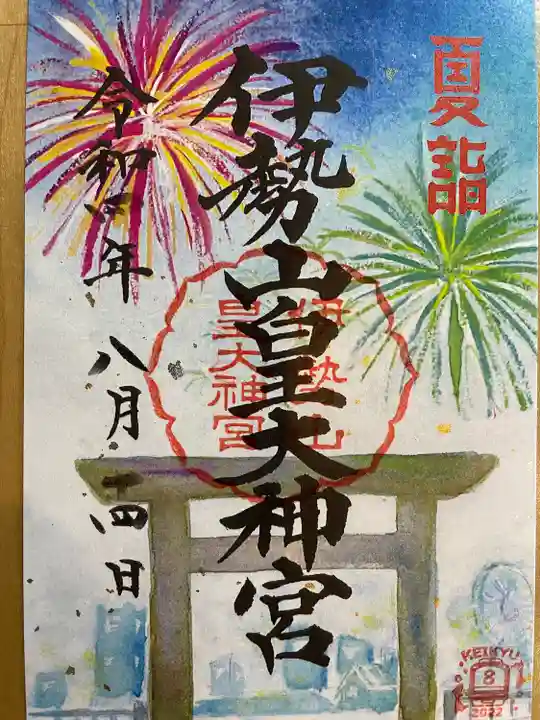 夏詣
伊勢山皇大神宮
伊勢山
皇大神宮
令和四年八月十四日
KEIKYU
8
2022